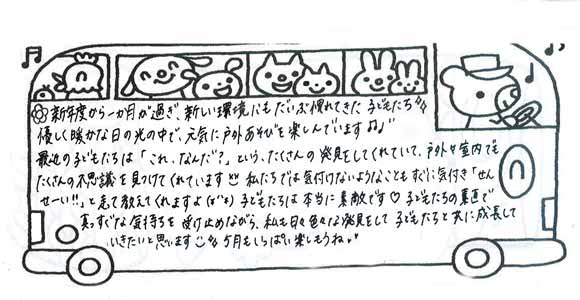 新年度から一か月が過ぎ、新しい環境にもだいぶ慣れてきた子どもたち
優しく暖かな日の光の中で、元気に戸外あそびを楽しんでいます♫♪
最近の子どもたちは「これ、なんだ?」という、たくさんの発見をしてくれていて、戸外や室内でも
たくさんの不思議を見つけてくれています 私たちでは気付けないようなこともすぐに気付き「せん
せーい!!」と走って教えてくれますよ(^^) 子どもたちは本当に素敵です♡ 子どもたちの素直で
真っすぐな気持ちを受け止めながら、私も日々色々な発見をして子どもたちと共に成長して
いきたいと思います 5月もいっぱい楽しもうね♪